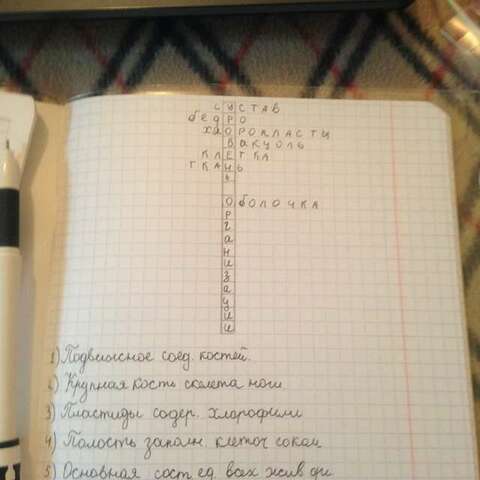 СУСТАВ
бедРО
хлОРОПЛАСТЫ
ВАКУОЛЬ
КЛЕТКА
ТКАНЬ
Ь
ОбОЛОЧКА
Р
Г
А
Н
И
З
А
Ц
И
И
1) Подвижное соед. костей.
2) Крупная кость скелета ноги
3) Пластиды содер. хлорофилл
4) Полость заполн. клеточ соком
5) Основная сост ед. всех жив